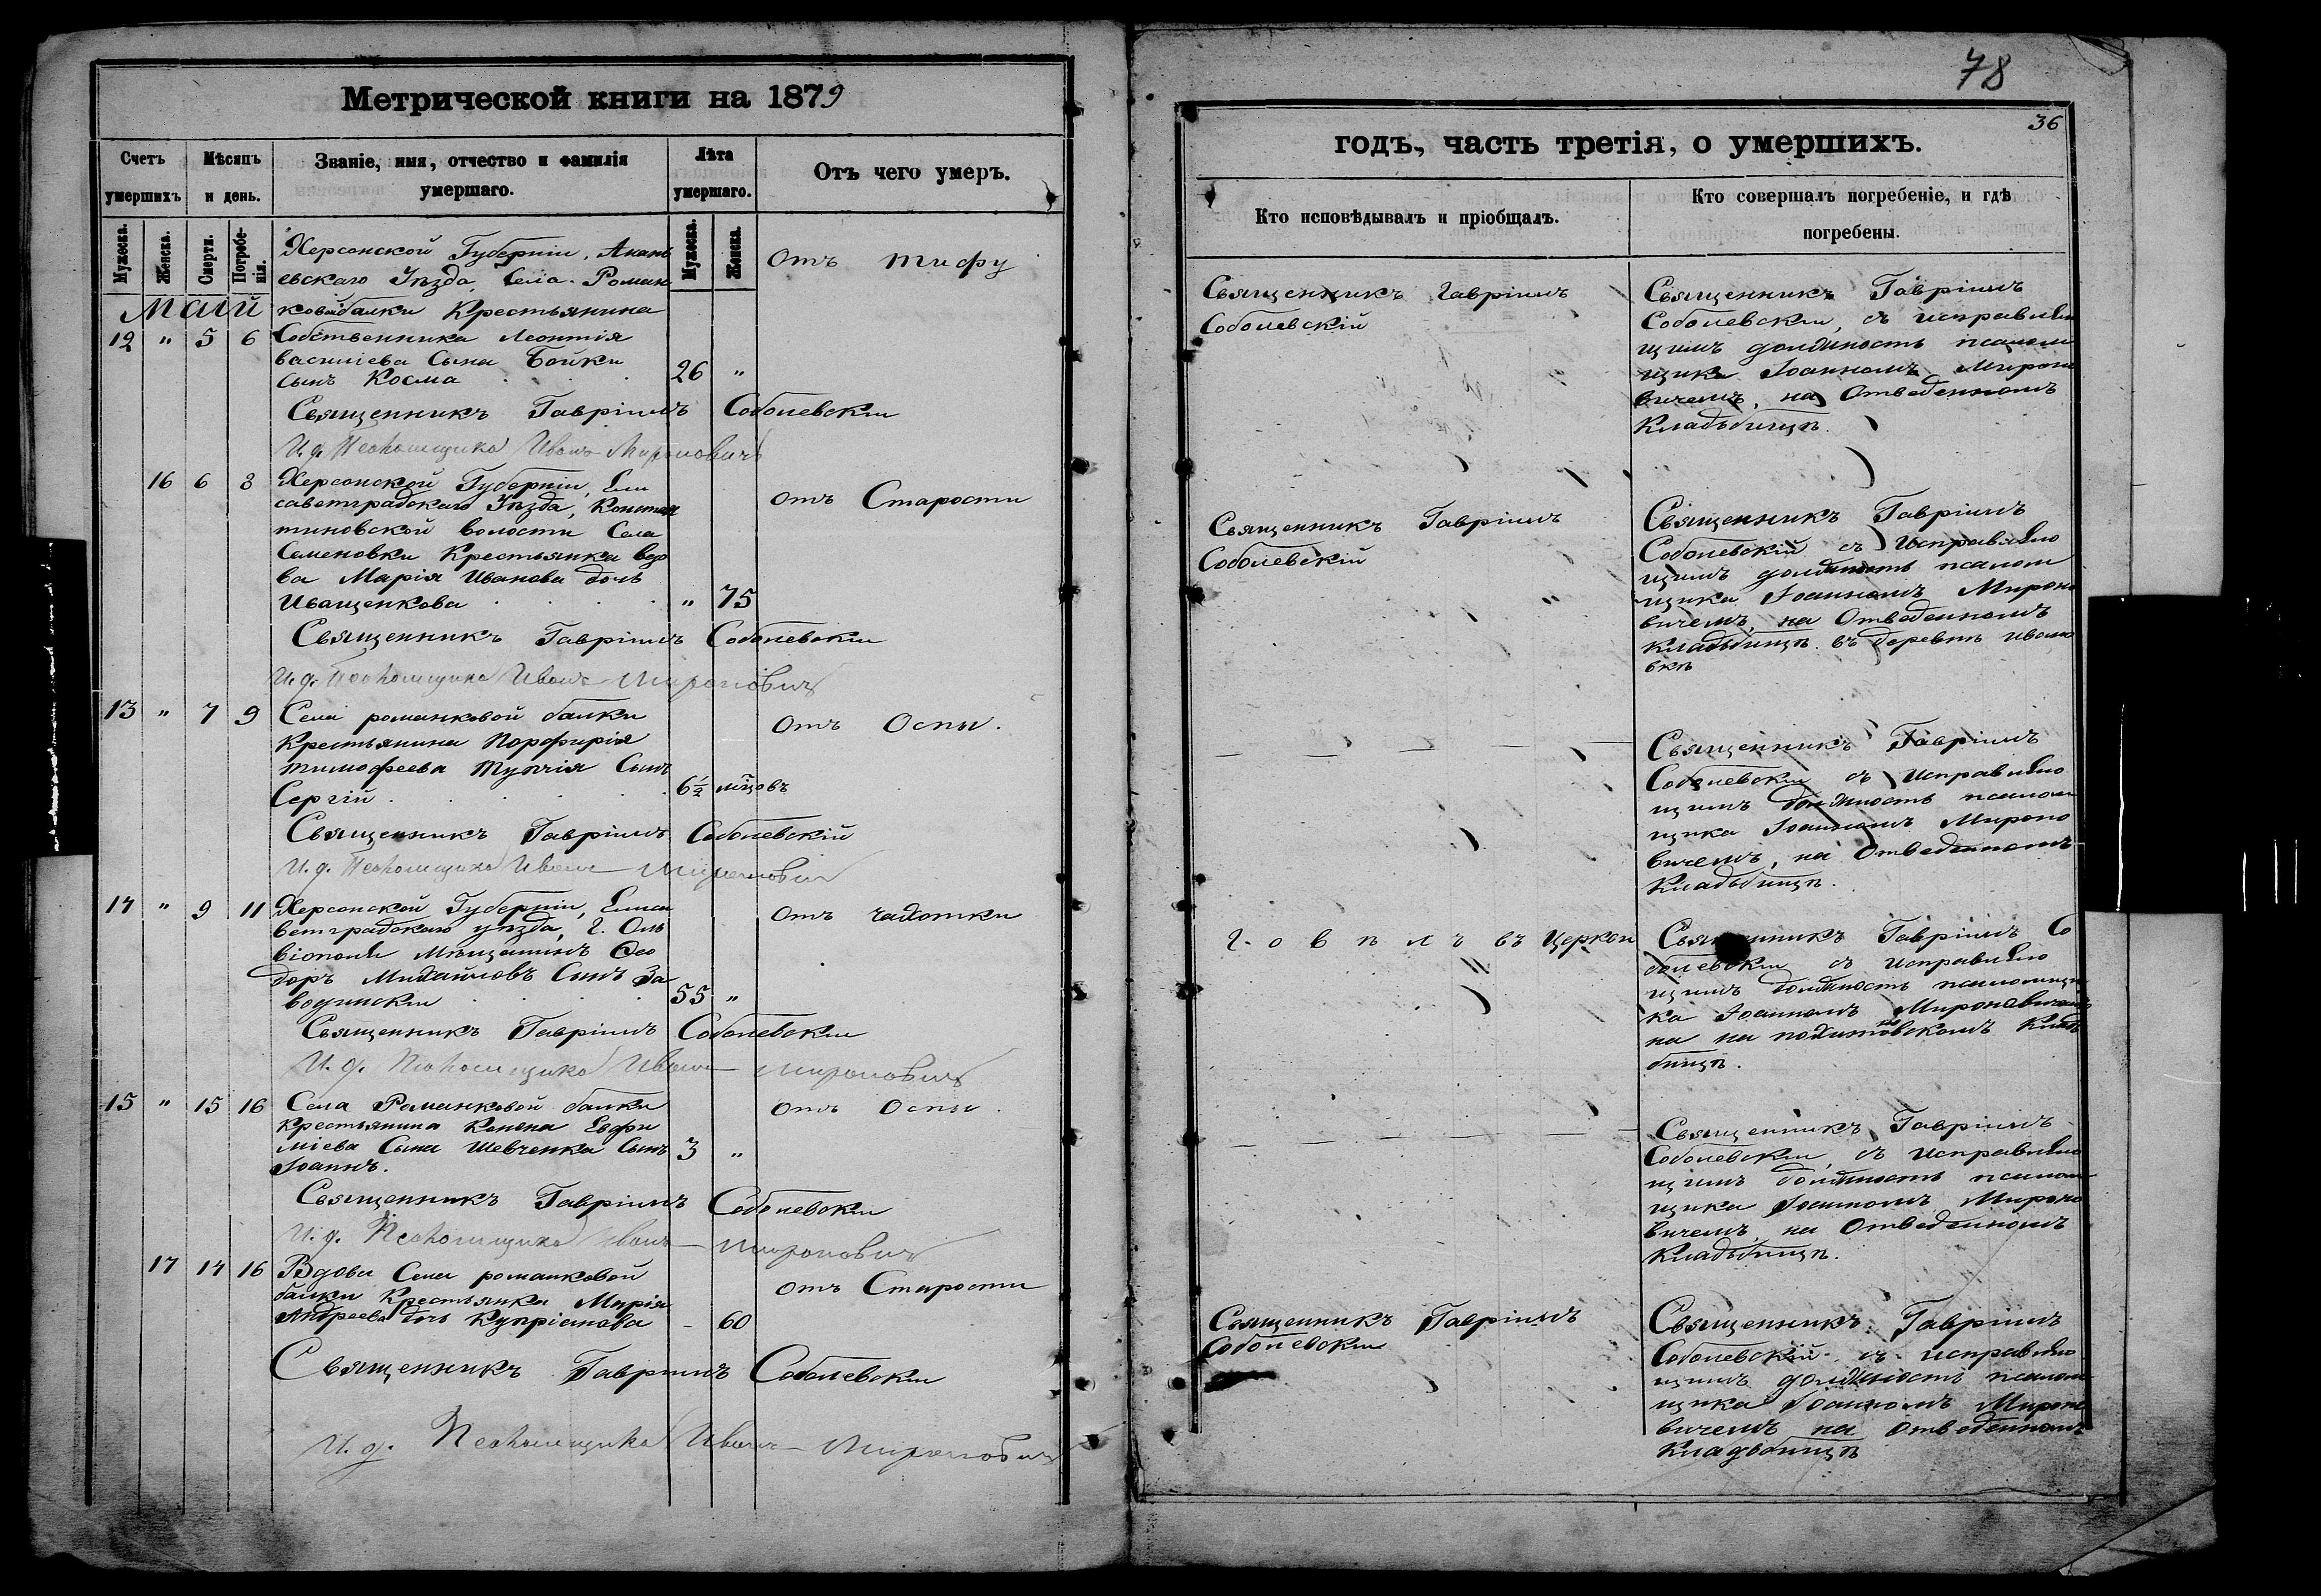 Метрической книги на 1879
Счетъ умершихъ
Мѣсяцъ и день.
Званіе, имя, отчество и фамилія умершаго.
Лѣта умершаго.
Отъ чего умеръ.
Мужеска.
Женска.
Смерти.
Погребенія.
Мужеска.
Женска.
Май
12 " 5 6
Херсонской Губерніи, Анань
евскаго Уѣзда, Села Роман
ковой балки Крестьянина
Собственника Леонтія
Василіева Сына Бойки
Сынъ Косма 26 "
отъ тифу
Священникъ Гавріилъ Соболевскій
И. д. Псаломщика Иванъ Мироновичъ
16 6 8
Херсонской Губерніи, Ели
саветградскаго Уѣзда, Констан
тиновской волости Села
Семеновки Крестьянка вдо
ва Марія Иванова дочь
Иващенкова " 75
отъ Старости
Священникъ Гавріилъ Соболевскій
И. д. Псаломщика Иванъ Мироновичъ
13 " 7 9
Села романковой балки
Крестьянина Порфирія
тимофеева Тупчія Сынъ
Сергій 6½ мцовъ
отъ Оспы.
Священникъ Гавріилъ Соболевскій
И. д. Псаломщика Иванъ Мироновичъ
14 " 9 11
Херсонской Губерніи, Елиса
ветградскаго уѣзда, Г. Оль
віополя Мѣщанинъ Ѳео
доръ Михайловъ Сынъ За
водинскій 55 "
отъ чахотки
Священникъ Гавріилъ Соболевскій
И. д. Псаломщика Иванъ Мироновичъ
15 " 15 16
Села Романковой балки
Крестьянина Конона Евфи
міева Сына Шевченка Сынъ 3 "
Іоаннъ.
отъ Оспы.
Священникъ Гавріилъ Соболевскій
И. д. Псаломщика Иванъ Мироновичъ
17 14 16
Вдова Села романковой
балки Крестьянка Марія
Андреева дочь Купріянова - 60
отъ Старости
Священникъ Гавріилъ Соболевскій
И. д. Псаломщика Иванъ Мироновичъ
78
36
годъ, часть третія, о умершихъ.
Кто исповѣдывалъ и пріобщалъ.
Кто совершалъ погребеніе, и гдѣ погребены.
Священникъ Гавріилъ
Соболевскій
Священникъ Гавріилъ
Соболевскій, съ исправляю
щимъ должность псалом
щика Іоанномъ Мироно
вичемъ, на Отведенномъ
Кладбищѣ.
Священникъ Гавріилъ
Соболевскій
Священникъ Гавріилъ
Соболевскій съ Исправляю
щимъ должность псалом
щика Іоанномъ Мироно
вичемъ, на Отведенномъ
кладбищѣ. въ деревнѣ Ивано
вкѣ
Священникъ Гавріилъ
Соболевскій съ Исправляю
щимъ должность псалом
щика Іоанномъ Мироно
вичемъ, на Отведенномъ
Кладбищѣ.
Говѣлъ въ Церкви
Священникъ Гавріилъ Со
болевскій съ Исправляю
щимъ должность псаломщи
ка Іоанномъ Мироновичемъ
Кладбищѣ.
Священникъ Гавріилъ
Соболевскій, съ Исправляю
щимъ должность псалом
щика Іоанномъ Мироно
вичемъ, на Отведенномъ
Кладбищѣ.
Священникъ Гавріилъ
Соболевскій
Священникъ Гавріилъ
Соболевскій съ исправляю
щимъ должность псалом
щика Іоанномъ Мироно
вичемъ на Отведенномъ
Кладбищѣ